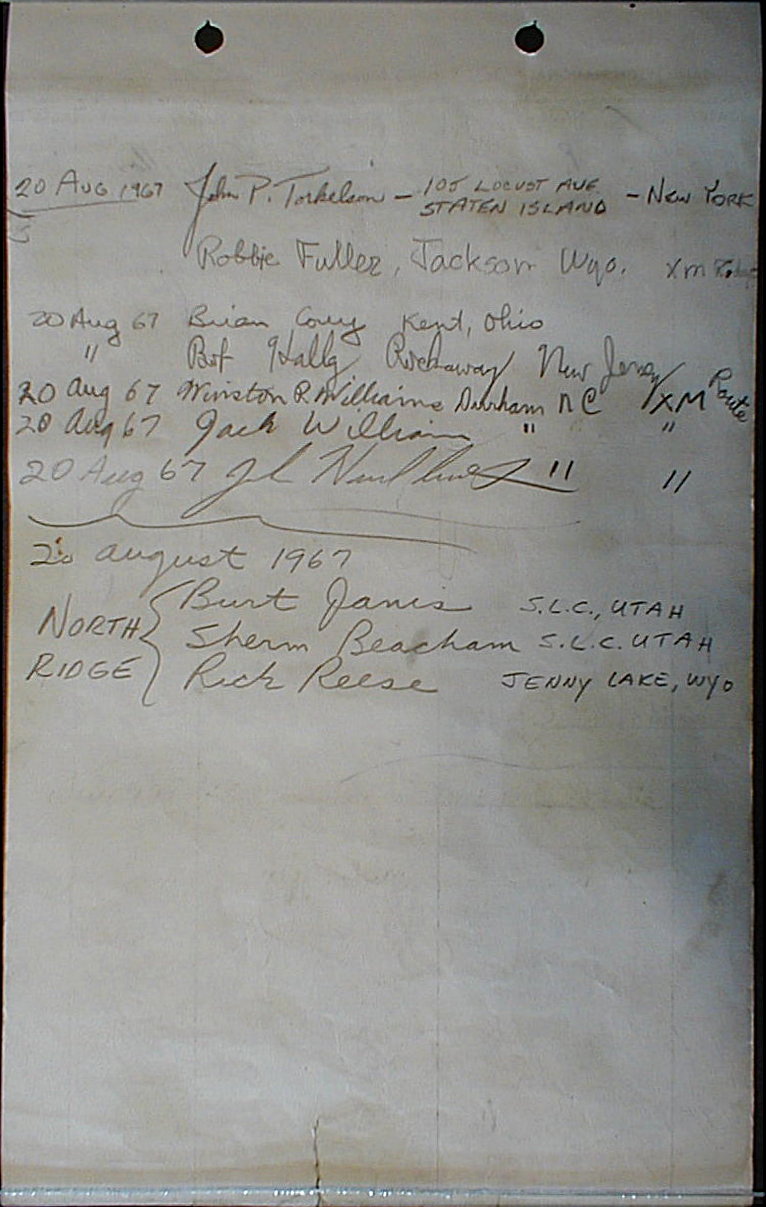 20 Aug 1967 John P. Torkelson – 105 LOCUST AVE. STATEN ISLAND – NEW YORK
Robbie Fuller, Jackson Wyo. XM
20 Aug 67 Brian Kent, Ohio
" Rockaway New Jersey
20 Aug 67 Winston R Williams Durham NC XM Route
20 Aug 67 Jack Williams " "
20 Aug 67 " "
20 august 1967
NORTH RIDGE { Burt Janis S.L.C., UTAH
Sherm Beacham S.L.C. UTAH
Rick Reese JENNY LAKE, WYO